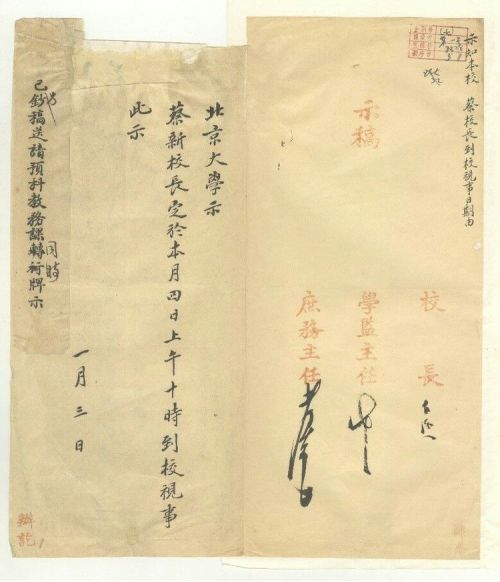 示知本校 蔡校長到校視事日期由
示稿
校長
學監主任
庶務主任
北京大學示
蔡新校長定於本月四日上午十時到校視事
此示
一月三日
已鈔稿送請預科教務課同時轉衍牌示
辦訖